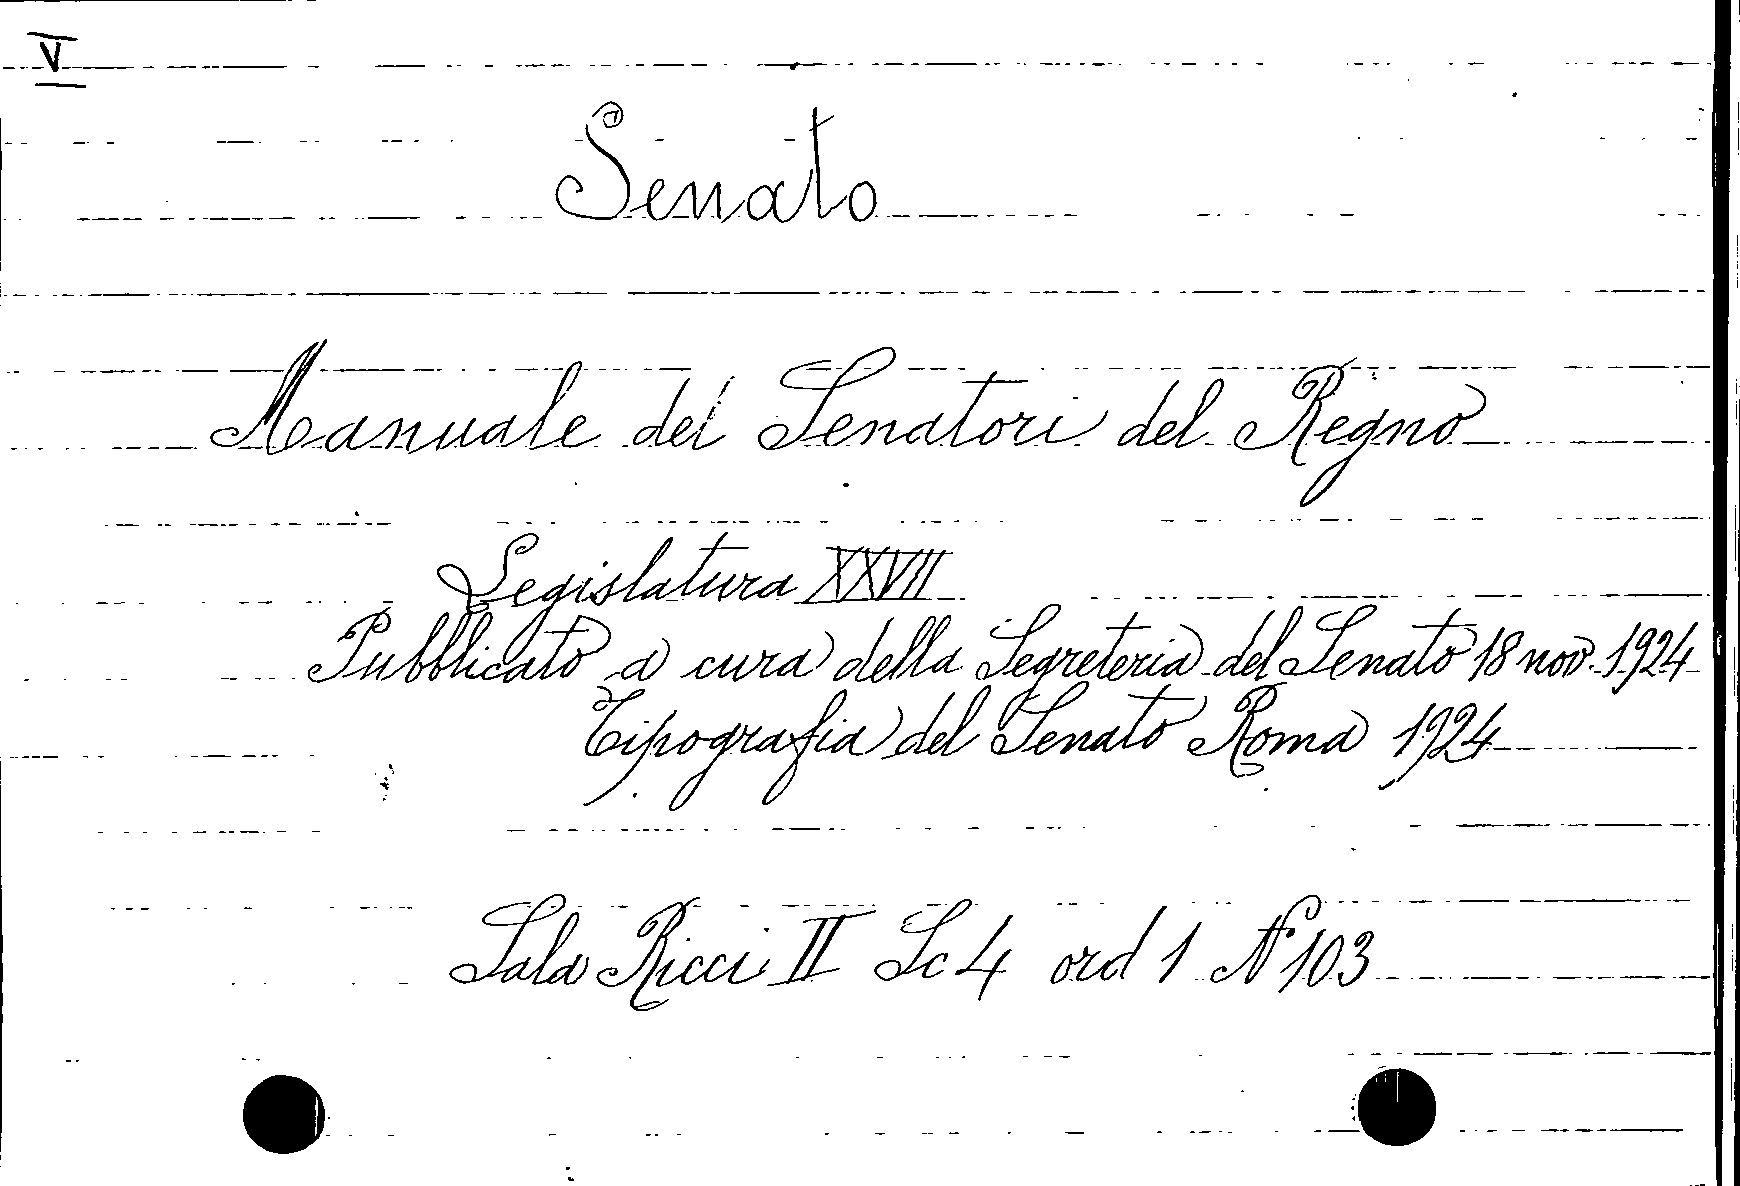 V
Senato
Manuale dei Senatori del Regno
Legislatura XXVII
Pubblicato a cura della Segreteria del Senato 18 nov. 1924
Tipografia del Senato Roma 1924
Sala Ricci II Sc 4 ord 1 N° 103